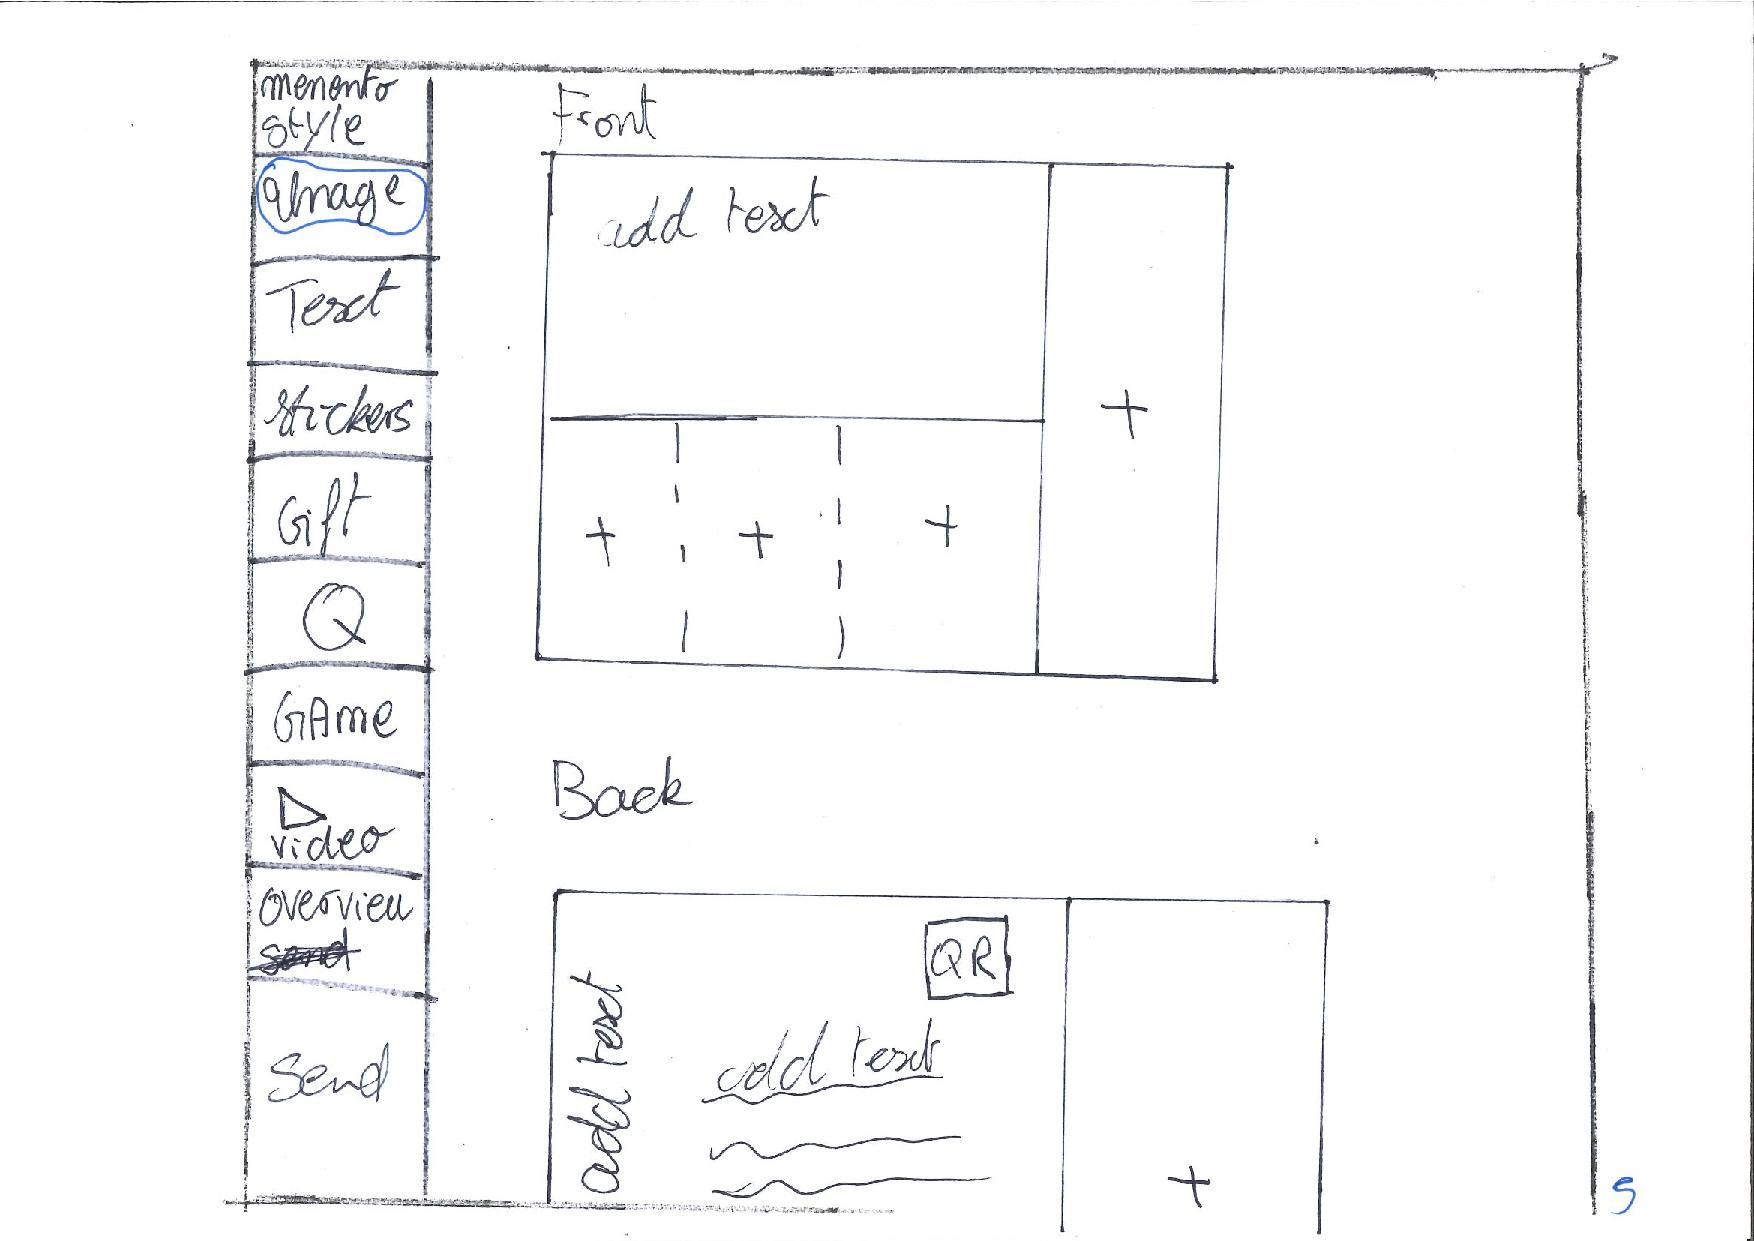 memento
style
Image
Text
stickers
Gift
Q
GAme
video
overview
send
Send
Front
add text
+
+
+
+
Back
QR
add text
add text
+
5